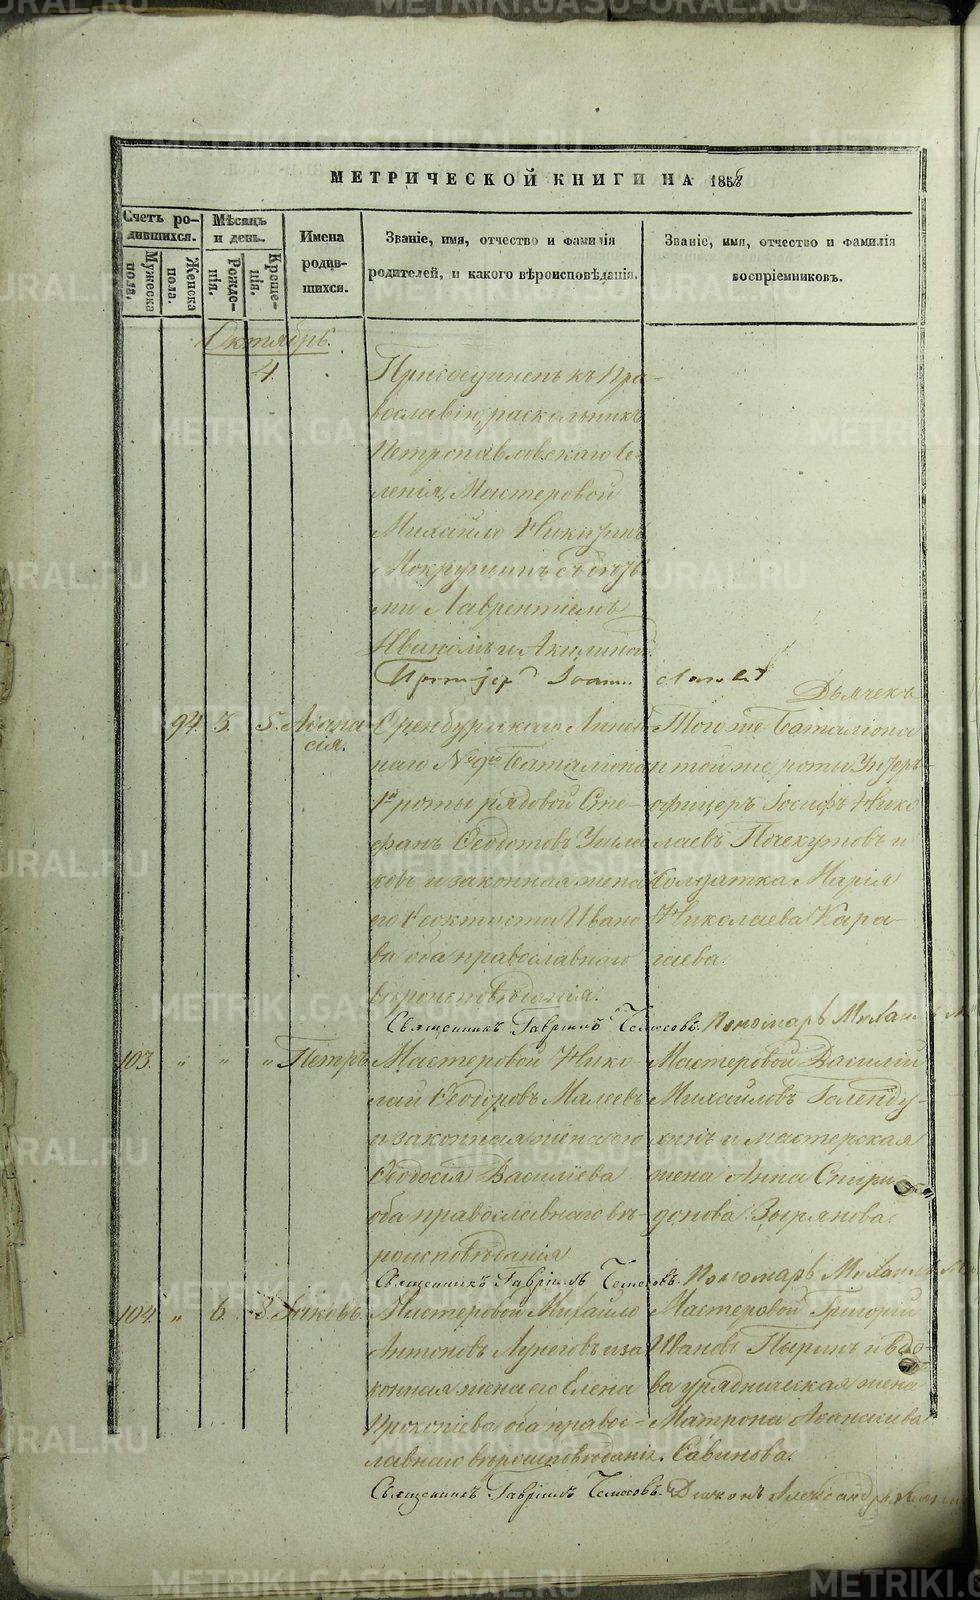 МЕТРИЧЕСКОЙ КНИГИ НА 1858
Счетъ ро-
дившихся.
Мужеска
пола.
Женска
пола.
Мѣсяцъ
и день.
Рожде-
нія.
Креще-
нія.
Имена
родив-
шихся.
Званіе, имя, отчество и фамилія
родителей, и какого вѣроисповѣданія.
Званіе, имя, отчество и фамилія
воспріемниковъ.
Октябрь.
4. Присоединенъ къ Пра-
вославію, раскольникъ
Петропавловскаго Се-
ленія, Мастеровой
Михайло
Мокрушинъ съ
ми Лаврентіемъ
Иваномъ и Акилиной.
Протоіер Іоанн
Дьячекъ
94. 3. 5. Аѳана
сія.
Оренбургскаго Линей
наго № 9го Баталіона
1й роты рядовой Сте-
фанъ Ѳедотовъ
ковъ и законная жена
его Ѳеоктиста Ивано
ва оба православнаго
вѣроисповѣданія.
Того же Баталіона
и той же роты Унтеръ-
офицеръ Іосифъ Нико
лаевъ Почекутовъ и
Солдатка Марія
Николаева Кара-
гаева.
Священникъ Гавріилъ Пономарь Михаилъ
103. " " " Петръ.
Мастеровой Нико-
лай Ѳеодоровъ Малеевъ
и законная жена его
Ѳеодосія Василіева
оба православнаго вѣ-
роисповѣданія
Мастеровой Василій
Михайловъ Галенду-
хинъ и мастерская
жена Анна Спири
донова Зырянова.
Священникъ Гавріилъ Пономарь Михаилъ
104. " 6. 8. Іаковъ.
Мастеровой Михайло
Антоновъ Лунеговъ и за
конная жена его Елена
Прокопіева оба правос-
лавнаго вѣроисповѣданія.
Мастеровой Григорій
Ивановъ Пыринъ и вдо-
ва урядническая жена
Матрона Аѳанасіева
Савинова.
Священникъ Гавріилъ Діаконъ Александръ
METRIKI.GASO-URAL.RU